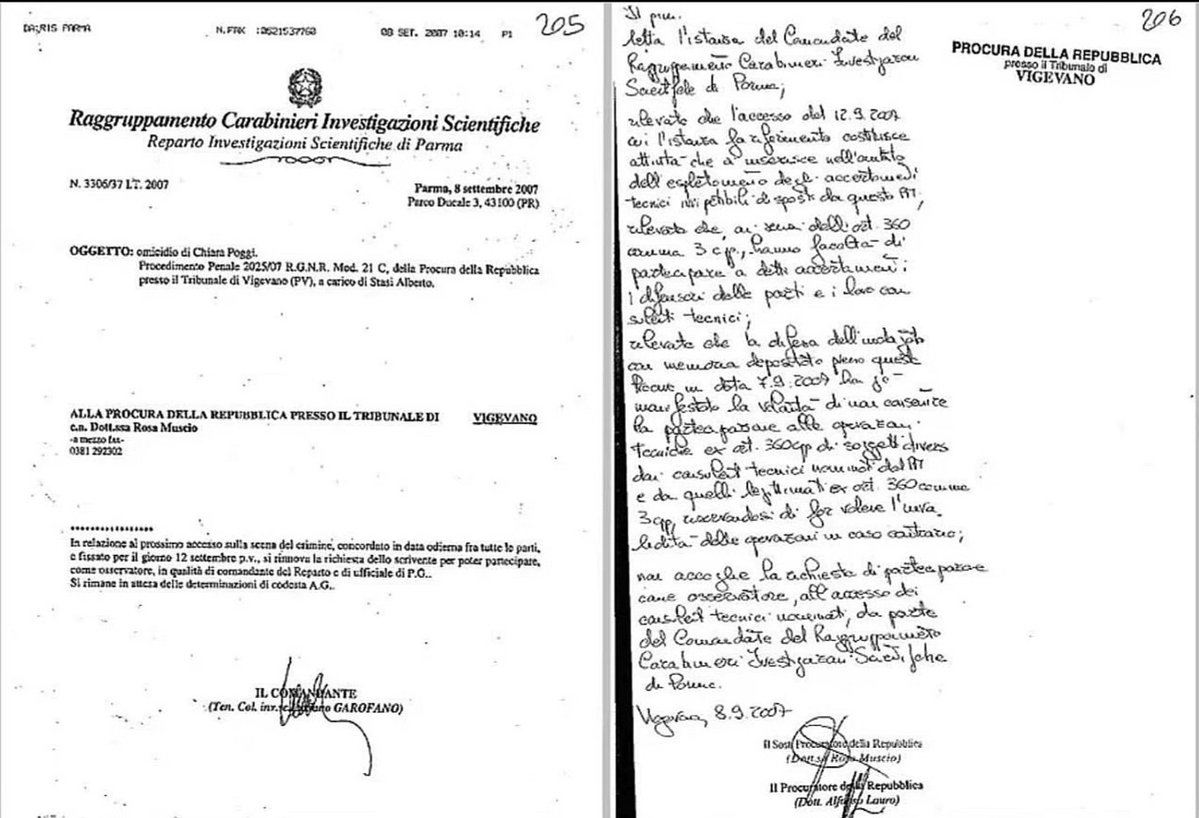 DA:RIS PARMA N.FAX :0521537760 08 SET. 2007 10:14 P1 205
Raggruppamento Carabinieri Investigazioni Scientifiche
Reparto Investigazioni Scientifiche di Parma
N. 3306/37 I.T. 2007
Parma, 8 settembre 2007
Parco Ducale 3, 43100 (PR)
OGGETTO: omicidio di Chiara Poggi.
Procedimento Penale 2025/07 R.G.N.R. Mod. 21 C, della Procura della Repubblica
presso il Tribunale di Vigevano (PV), a carico di Stasi Alberto.
ALLA PROCURA DELLA REPUBBLICA PRESSO IL TRIBUNALE DI VIGEVANO
c.a. Dott.ssa Rosa Muscio
-a mezzo fax-
0381 292302
****************
In relazione al prossimo accesso sulla scena del crimine, concordato in data odierna fra tutte le parti,
e fissato per il giorno 12 settembre p.v., si rinnova la richiesta dello scrivente per poter partecipare,
come osservatore, in qualità di comandante del Reparto e di ufficiale di P.G..
Si rimane in attesa delle determinazioni di codesta A.G..
IL COMANDANTE
(Ten. Col. GAROFANO)
206
PROCURA DELLA REPUBBLICA
presso il Tribunale di
VIGEVANO
Il p.m.
letta l'istanza del Comandate del
Raggruppamento Carabinieri Investigazioni
Scientifiche di Parma;
rilevato che l'accesso del 12.9.2007
cui l'istanza fa riferimento costituisce
attività che si inserisce nell'ambito
dell'espletamento degli accertamenti
tecnici irripetibili disposti da questo PM;
rilevato che, ai sensi dell'art. 360
comma 3 cpp, hanno facoltà di
partecipare a detti accertamenti
i difensori delle parti e i loro con
sulenti tecnici;
rilevato che la difesa dell'indagato
con memoria depositata presso questa
Procura in data 7.9.2007 ha già
manifestato la volontà di non consentire
la partecipazione alle operazioni
tecniche ex art. 360 cpp di soggetti diversi
dai consulenti tecnici nominati dal PM
e da quelli legittimati ex art. 360 comma
3 cpp, riservandosi di far valere l'inva
lidità delle operazioni in caso contrario;
non accoglie la richiesta di partecipare
come osservatore, all'accesso dei
consulenti tecnici nominati, da parte
del Comandate del Raggruppamento
Carabinieri Investigazioni Scientifiche
di Parma.
Vigevano, 8.9.2007
Il Sost. Procuratore della Repubblica
(Dott.ssa Rosa Muscio)
Il Procuratore della Repubblica
(Dott. Alfonso Lauro)